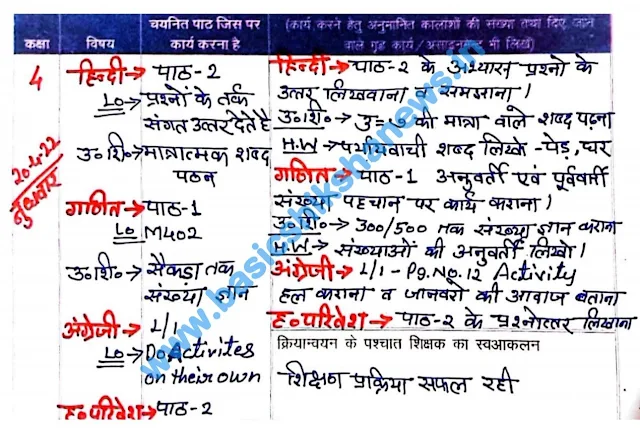 कक्षा
विषय
चयनित पाठ जिस पर
कार्य करना है
(कार्य करने हेतु अनुमानित कालांशों की संख्या तथा दिए जाने
वाले गृह कार्य / असाइनमेंट भी लिखें)
4
20.4.22
बुधवार
हिन्दी→ पाठ-2
LO→ प्रश्नों के तर्क
संगत उत्तर देते है
उ०शि०→ मात्रात्मक शब्द
पठन
गणित→ पाठ-1
LO M402
उ०शि०→ सैकड़ा तक
संख्या ज्ञान
अंग्रेजी→ L/1
LO→ Do Activites
on their own
ह०परिवेश→ पाठ-2
हिन्दी→ पाठ-२ के अभ्यास प्रश्नो के
उत्तर लिखवाना व समझाना।
उ०शि०→ उ=ु की मात्रा वाले शब्द पढ़ना
H.W→ पर्यायवाची शब्द लिखे -पेड़, घर
गणित→ पाठ-1 अनुवर्ती एवं पूर्ववर्ती
संख्या पहचान पर कार्य कराना।
उ०शि०→ 300/500 तक संख्या ज्ञान कराना
H.W→ संख्याओं की अनुवर्ती लिखो।
अंग्रेजी→ L/1-Pg.No.12 Activity
हल कराना व जानवरो की आवाज बताना
ह०परिवेश→ पाठ-२ के प्रश्नोत्तर लिखाना
क्रियान्वयन के पश्चात शिक्षक का स्वआकलन
शिक्षण प्रक्रिया सफल रही
www.basicshikshanews.in